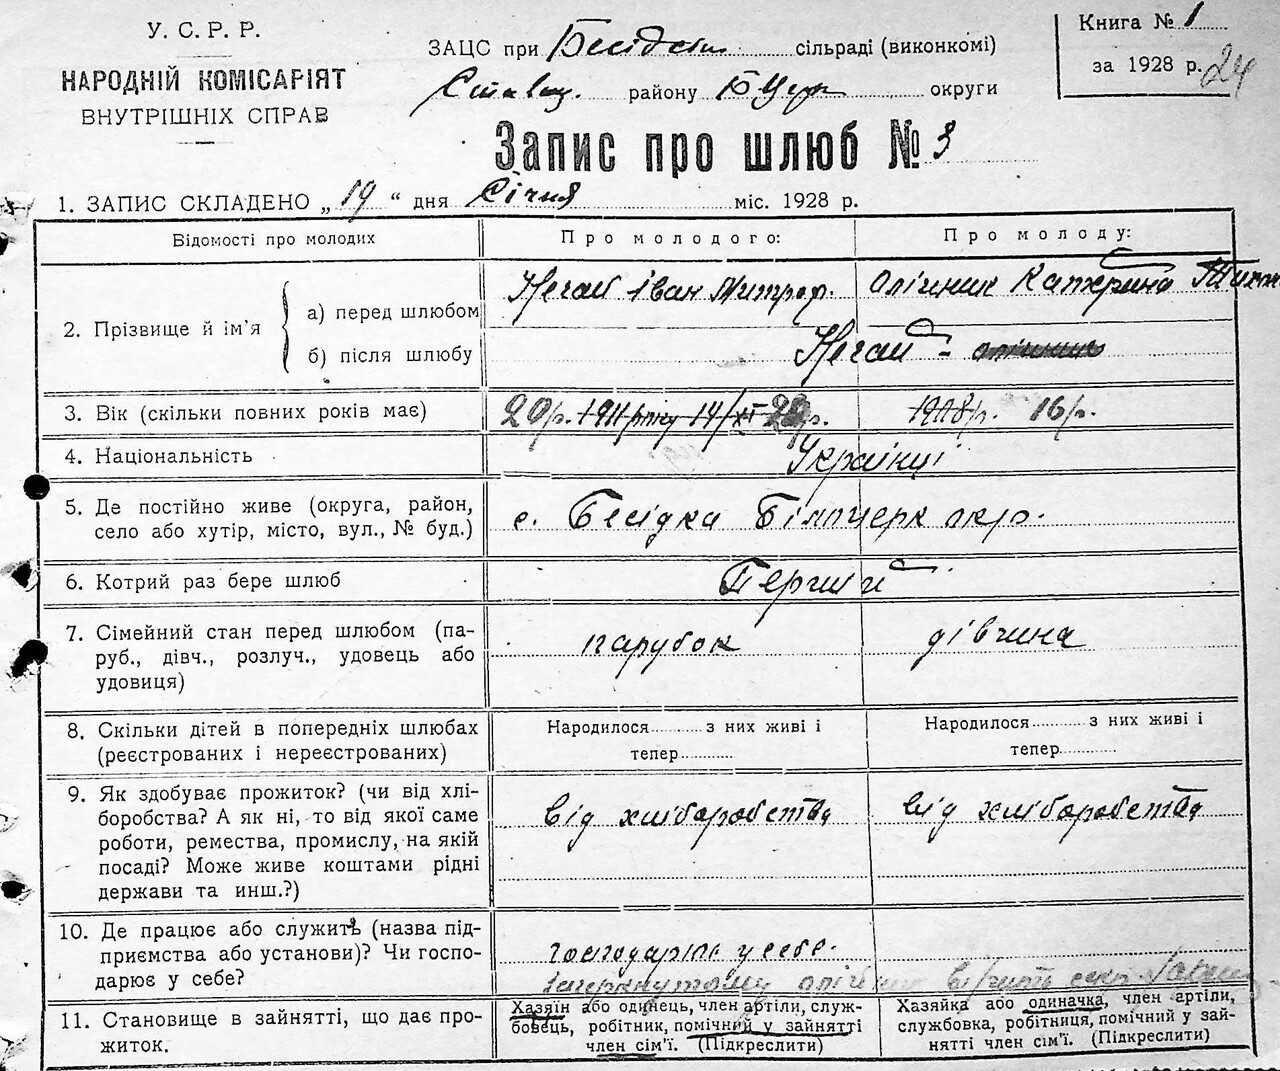 У. С. Р. Р.
НАРОДНІЙ КОМІСАРІЯТ
ВНУТРІШНІХ СПРАВ
ЗАЦС при Бесідськ. сільраді (виконкомі)
Ставищ. району БЦерк округи
Книга № 1
за 1928 р. 24
Запис про шлюб № 3
1. ЗАПИС СКЛАДЕНО „ 19 “ дня Січня міс. 1928 р.
Відомості про молодих
Про молодого:
Про молоду:
2. Прізвище й ім'я
а) перед шлюбом
Нечай Іван Митроф.
Олійник Катерина
б) після шлюбу
Нечай - олійник
3. Вік (скільки повних років має)
20 р. 1911 року 14/XI р.
1908 р. 16 р.
4. Національність
Українці
5. Де постійно живе (округа, район,
село або хутір, місто, вул., № буд.)
с. Бесідка Білоцерк окр.
6. Котрий раз бере шлюб
Перший
7. Сімейний стан перед шлюбом (па-
руб., дівч., розлуч., удовець або
удовиця)
парубок
дівчина
8. Скільки дітей в попередніх шлюбах
(реєстрованих і нереєстрованих)
Народилося з них живі і
тепер
Народилося з них живі і
тепер
9. Як здобуває прожиток? (чи від хлі-
боробства? А як ні, то від якої саме
роботи, ремества, промислу, на якій
посаді? Може живе коштами рідні
держави та инш.?)
від хліборобства
від хліборобства
10. Де працює або служить (назва під-
приємства або установи)? Чи госпо-
дарює у себе?
господарює у себе.
11. Становище в зайнятті, що дає про-
житок.
Хазяїн або одинець, член артіли, служ-
бовець, робітник, помічний у зайнятті
член сім'ї. (Підкреслити)
Хазяйка або одиначка, член артіли,
службовка, робітниця, помічний у зай-
нятті член сім'ї. (Підкреслити)